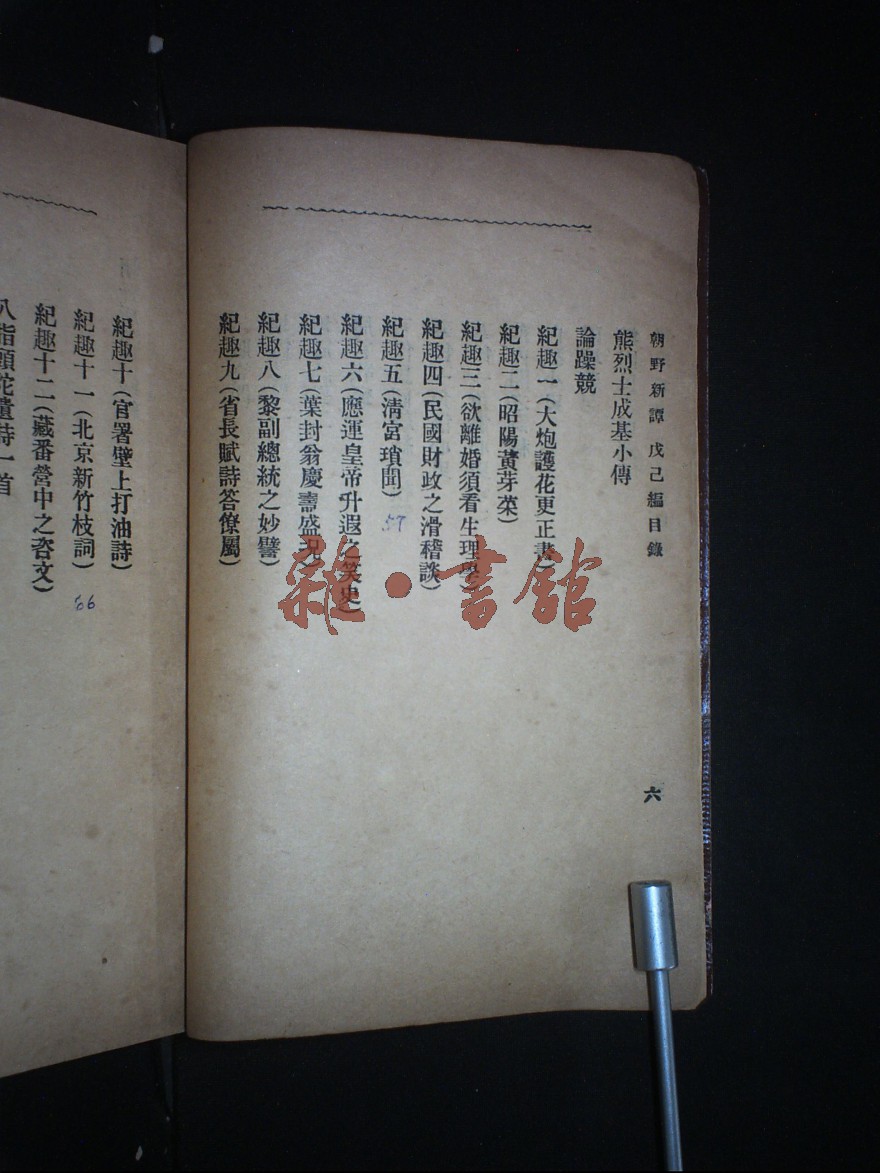 朝野新譚 戊己編目錄
六
熊烈士成基小傳
論躁競
紀趣一(大炮護花更正書)
紀趣二(昭陽黃芽菜)
紀趣三(欲離婚須看生理學)
紀趣四(民國財政之滑稽談)
紀趣五(清宮瑣聞) 57
紀趣六(應運皇帝升遐之笑史)
紀趣七(葉封翁慶壽盛況)
紀趣八(黎副總統之妙譬)
紀趣九(省長賦詩答僚屬)
紀趣十(官署壁上打油詩)
紀趣十一(北京新竹枝詞) 66
紀趣十二(藏番營中之咨文)
八指頭陀遺詩一首
雜·書館